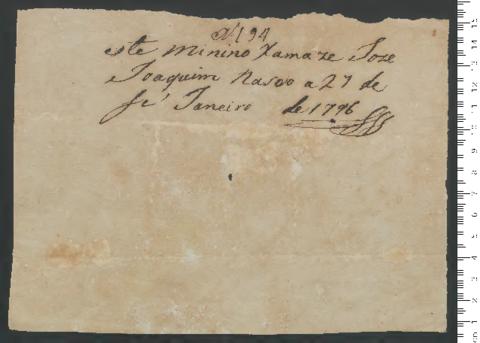 Nº 194
este Minino Xamaze Joze
Joaquim Nasco a 27 de
Janeiro de 1796